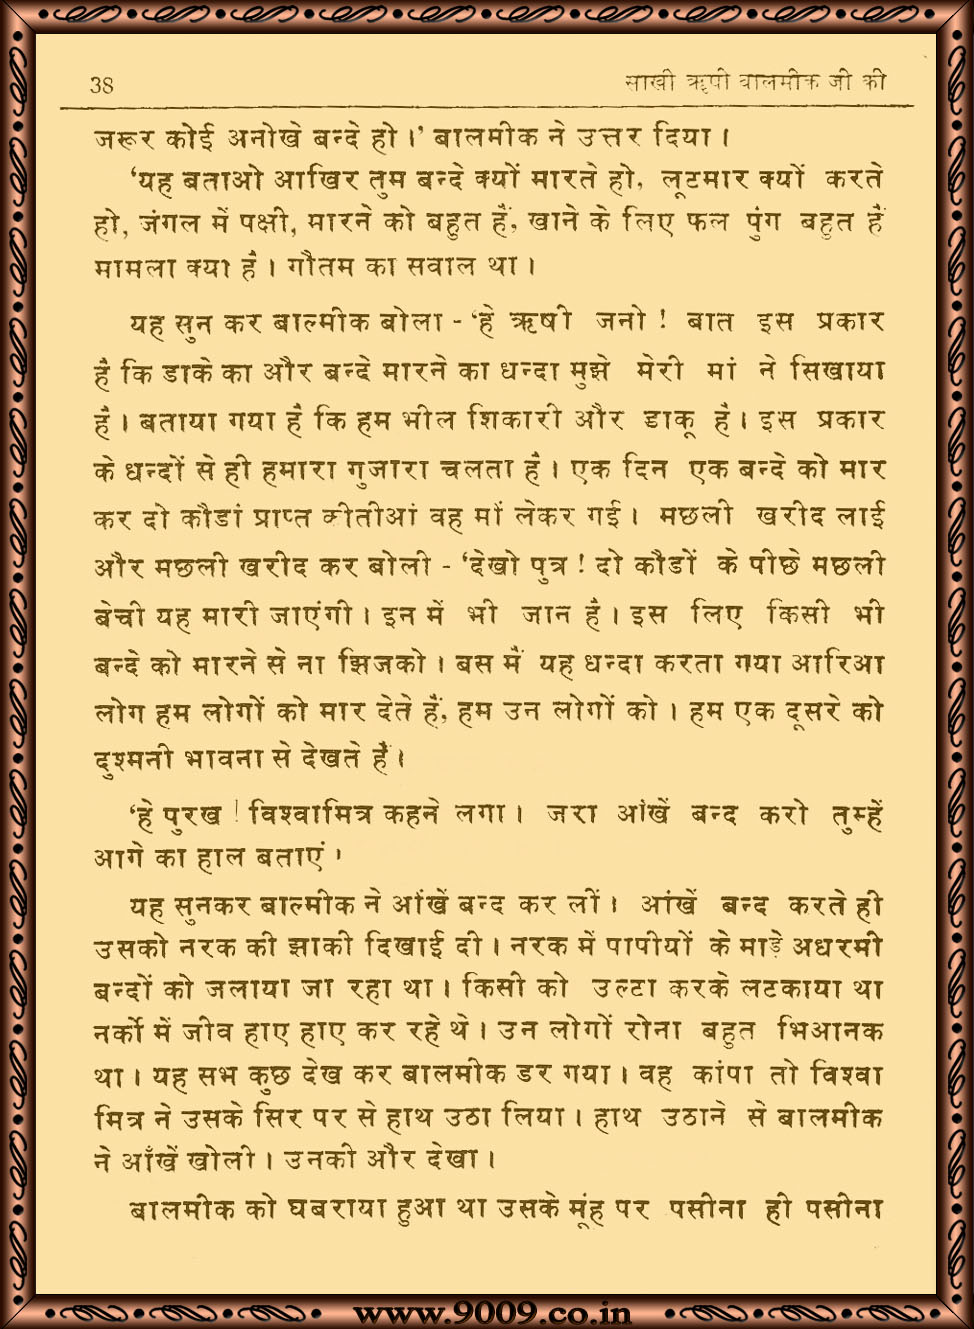 38 साखी ऋषी बालमीक जी की
जरूर कोई अनोखे बन्दे हो।’ बालमीक ने उत्तर दिया।
‘यह बताओ आखिर तुम बन्दे क्यों मारते हो, लूटमार क्यों करते
हो, जंगल में पक्षी, मारने को बहुत हैं, खाने के लिए फल पुंग बहुत हैं
मामला क्या है। गौतम का सवाल था।
यह सुन कर बाल्मीक बोला - ‘हे ऋषी जनो! बात इस प्रकार
है कि डाके का और बन्दे मारने का धन्दा मुझे मेरी मां ने सिखाया
है। बताया गया है कि हम भील शिकारी और डाकू है। इस प्रकार
के धन्दों से ही हमारा गुजारा चलता है। एक दिन एक बन्दे को मार
कर दो कौडां प्राप्त कीतीआं वह माँ लेकर गई। मछली खरीद लाई
और मछली खरीद कर बोली - ‘देखो पुत्र! दो कौडों के पीछे मछली
बेची यह मारी जाएंगी। इन में भी जान है। इस लिए किसी भी
बन्दे को मारने से ना झिजको। बस मैं यह धन्दा करता गया आरिआ
लोग हम लोगों को मार देते हैं, हम उन लोगों को। हम एक दूसरे को
दुश्मनी भावना से देखते हैं।
‘हे पुरख! विश्वामित्र कहने लगा। जरा आंखें बन्द करो तुम्हें
आगे का हाल बताएं।
यह सुनकर बाल्मीक ने आंखें बन्द कर लीं। आंखें बन्द करते ही
उसको नरक की झाकी दिखाई दी। नरक में पापीयों के माड़े अधरमी
बन्दों को जलाया जा रहा था। किसी को उल्टा करके लटकाया था
नर्को में जीव हाए हाए कर रहे थे। उन लोगों रोना बहुत भिआनक
था। यह सभ कुछ देख कर बालमीक डर गया। वह कांपा तो विश्वा
मित्र ने उसके सिर पर से हाथ उठा लिया। हाथ उठाने से बालमीक
ने आँखें खोली। उनकी और देखा।
बालमीक को घबराया हुआ था उसके मूंह पर पसीना ही पसीना
www.9009.co.in